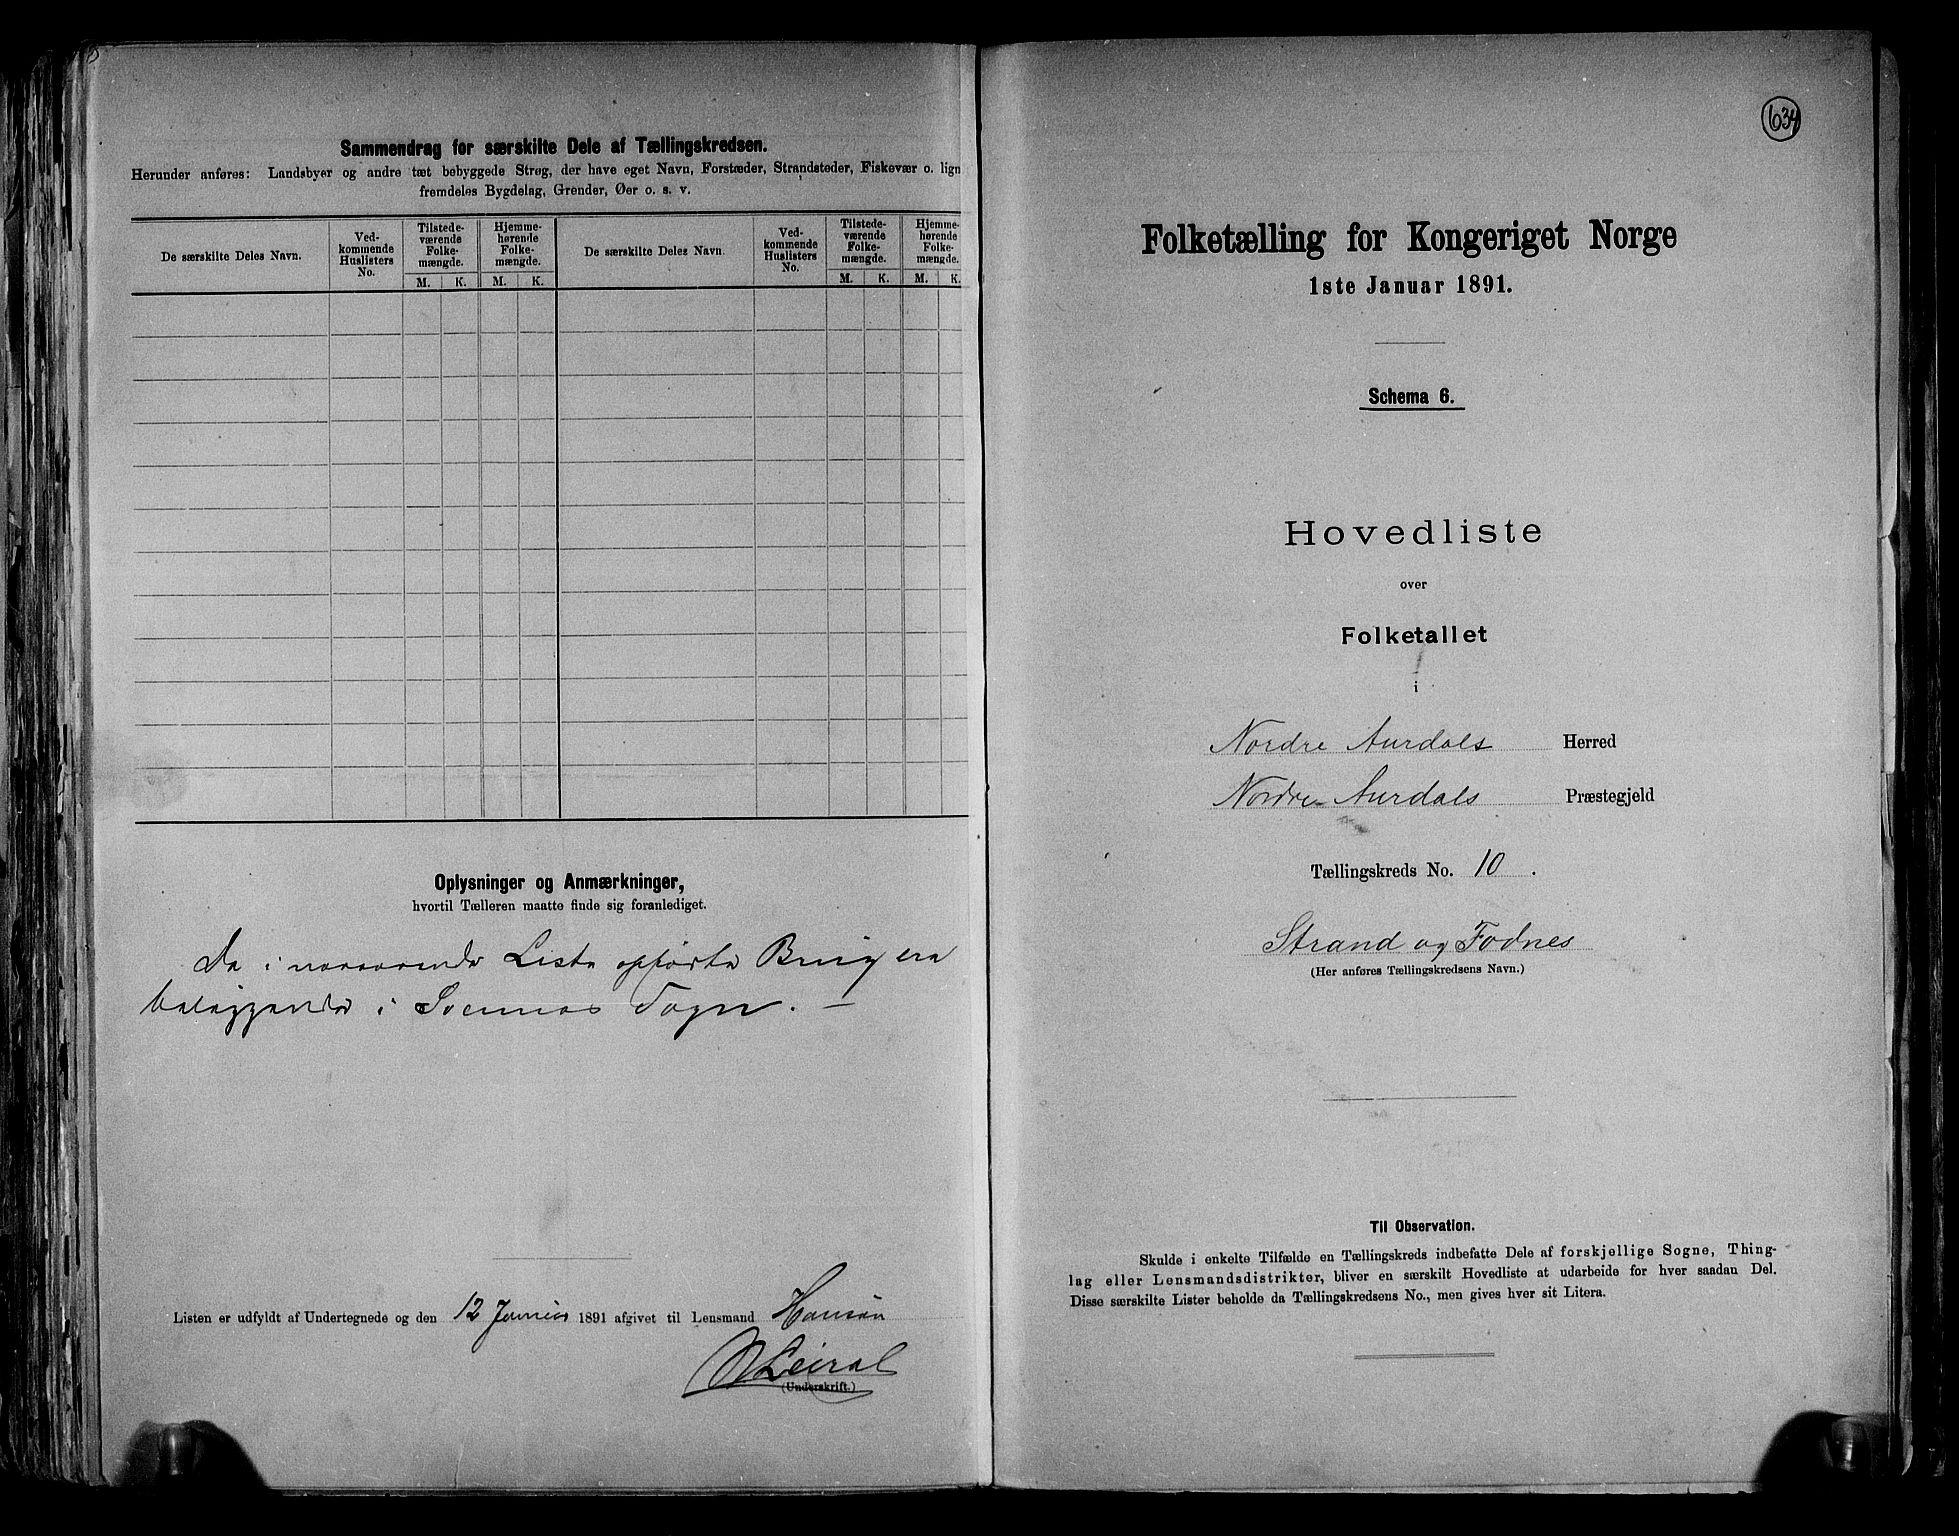 Sammendrag for særskilte Dele af Tællingskredsen.
Herunder anføres: Landsbyer og andre tæt bebyggede Strøg, der have eget Navn, Forstæder, Strandsteder, Fiskevær o. lign
fremdeles Bygdelag, Grender, Øer o. s. v.
De særskilte Deles Navn.
Ved-
kommende
Huslisters
No.
Tilstede-
værende
Folke-
mængde.
M. K.
Hjemme-
hørende
Folke-
mængde.
M. K.
De særskilte Deles Navn.
Ved-
kommende
Huslisters
No.
Tilstede-
værende
Folke-
mængde.
M. K.
Hjemme-
hørende
Folke-
mængde.
M. K.
Oplysninger og Anmærkninger,
hvortil Tælleren maatte finde sig foranlediget.
De i nærværende Liste opførte Brug ere
beliggende i Svennes Sogn. —
Listen er udfyldt af Undertegnede og den 12 Januar 1891 afgivet til Lensmand Hansen
(Underskrift.)
634
Folketælling for Kongeriget Norge
1ste Januar 1891.
Schema 6.
Hovedliste
over
Folketallet
i
Nordre Aurdals Herred
Nordre Aurdals Præstegjeld
Tællingskreds No. 10.
Strand og Fodnes
(Her anføres Tællingskredsens Navn.)
Til Observation.
Skulde i enkelte Tilfælde en Tællingskreds indbefatte Dele af forskjellige Sogne, Thing-
lag eller Lensmandsdistrikter, bliver en særskilt Hovedliste at udarbeide for hver saadan Del.
Disse særskilte Lister beholde da Tællingskredsens No., men gives hver sit Litera.